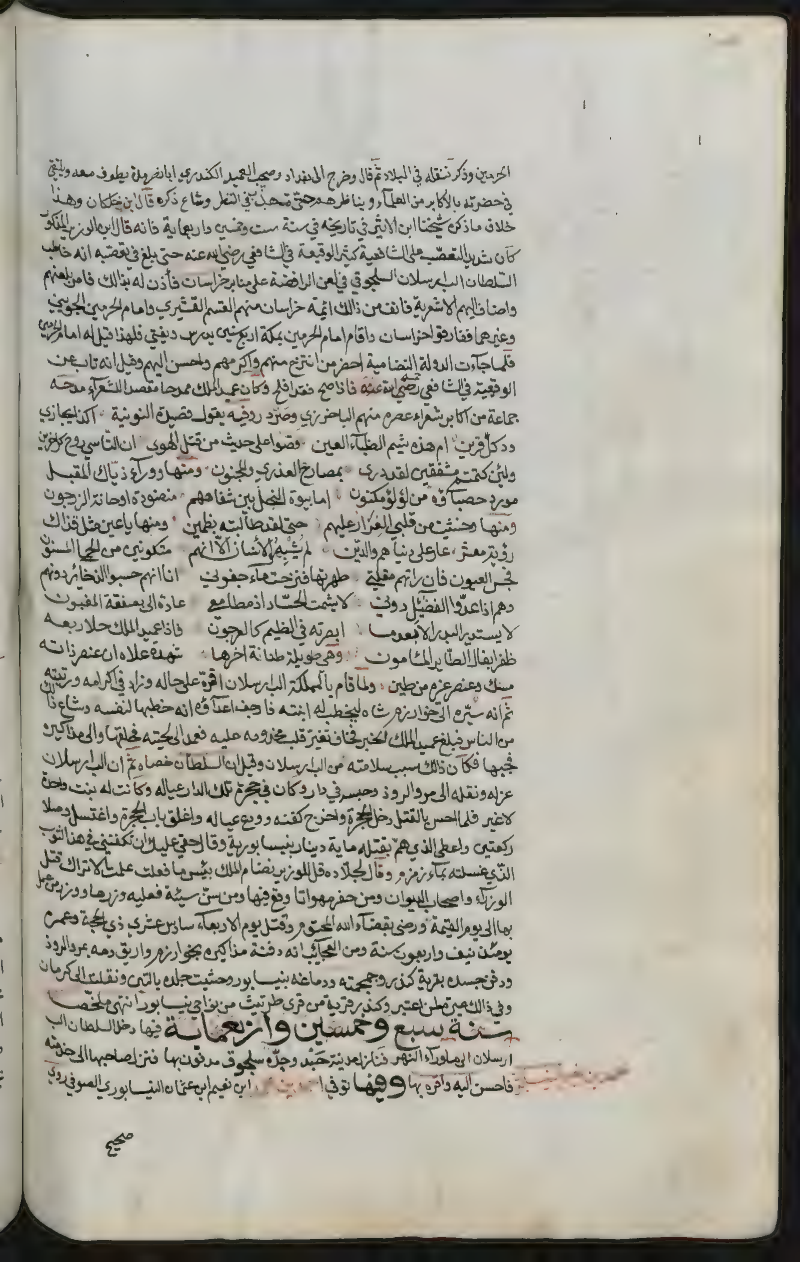 الحرمين وذكر تنقله في البلاد ثم قال وخرج الى بغداد وصحب العميد الكندري ابا نصر مدة يطوف معه ويلتقي
في حضرته بالاكابر من العلماء ويناظرهم حتى تهذب في النظر وشاع ذكره قال ابن خلكان وهذا
خلاف ما ذكره شيخنا ابن الاثير في تاريخه في سنة ست وخمسين واربعماية فانه قال ان الوزير المذكور
كان شديد التعصب على الشافعية كثير الوقيعة في الشافعي رضي الله عنه حتى بلغ في تعصبه انه خاطب
السلطان الب ارسلان السلجوقي في لعن الرافضة على منابر خراسان فأذن له بذالك فامر بلعنهم
واضاف اليهم الاشعرية فانف من ذالك ائمة خراسان منهم القسم القشيري وامام الحرمين الجويني
وغيرهما ففارقوا خراسان واقام امام الحرمين بمكة اربع سنين يدرس ويفتي فلهذا قيل له امام الحرمين
فلما جاءت الدولة النضامية احضر من انتزح منهم واكرمهم واحسن اليهم وقيل انه تاب عن
الوقيعة في الشافعي رضي الله عنه فاذا صح فقد افلح وكان عميد الملك ممدوحا مقصد الشعراء مدحه
جماعة من اكابر شعراء عصره منهم الباخرزي وصرد روفيه يقول قصيدة النونية اكذا يجازي
ود كل قرين ام هذه شيم الظباء العين وقصوا على حديث من قتل الهوى ان التأسي روح كل حزين
ولئن كتمتم مشفقين لقد درى بمصارع العذري والمجنون ومنها ووراء ذياك المقبل
مورد حصباؤه من لؤلؤ مكنون اما بيوت النحل بين شفاههم منضودة او حانة الزرجون
ومنها وخشيت من قلبي الفرار عليهم حتى لقد طالبته بظمين ومنها يا عين مثل قذاك
رؤية معشر عار على دنياهم والدين لم يشبه الانسان الا انهم متكونين من الحما المسنون
نجس العيون فان راتهم مقلتي طهرتها فنزحت ماء جفوني انا انهم حسبوا الذخائر دونهم
وهم اذا عدوا الفضيل دوني لا يشمت الحساد اذ مطامعي عادة الى بصفقة المغبون
لا يستدير البدر الا بعدما ابصرته في الظيم كالعرجون فاذا عميد الملك حلا ربعه
ظفرا بفال الطاير المامون وهي طويلة طنانة اخرها تهدة علاه ان عنصر ذاته
مسك وعنصر غيره من طين ولما قام بالمملكة الب ارسلان اقره على حاله وزاد في اكرامه ورتبته
ثم انه سيره الى خوارزم شاه ليخطب له ابنته فارجف اعداؤه انه خطبها لنفسه وشاع ذالك
من الناس فبلغ عميد الملك الخبر فخاف تغير قلب مخدومه عليه فعمد الى لحيته فحلقها والى مذاكيره
فجبها فكان ذلك سبب سلامته من الب ارسلان وقيل ان السلطان خصاه ثم ان الب ارسلان
عزله ونقله الى مرو الروذ وحبسه في دار وكان في حجرة تلك الدار عياله وكانت له بنت واحدة
لا غير فلما احس بالقتل دخل الحجرة واخرج كفنه وودع عياله واغلق باب الحجرة واغتسل وصلا
ركعتين واعطى الذي هم بقتله ماية دينار نيسابورية وقال حقي عليك ان تكفنني في هذا الثوب
الذي غسلته بماء زمزم وقال لجلاده قل للوزير نضام الملك بئس ما فعلت علمت الاتراك قتل
الوزراء واصحاب الديوان ومن حفر مهواتا وقع فيها ومن سن سيئة فعليه وزرها ووزر من عمل
بها الى يوم القيمة ورضي بقضاء الله المحتوم وقتل يوم الاربعاء سادس عشري ذي الحجة وعمره
يومئذ نيف واربعون سنة ومن العجائب انه دفنة مذاكيره بخوارزم واريق دمه بمرو الروذ
ودفن جسده بقرية كندر وجمجمته ودماغه بنيسابور وحشيت جلده بالتبن ونقلت الى كرمان
وفي ذالك عبر لمن اعتبر وكندر قرية من قرى طريثيث من نواحي نيسابور انتهى ملخصا
سنة سبع وخمسين واربعماية فيها دخل السلطان الب
ارسلان الى ماوراء النهر فنازل مدينة جند وجده سلجوق مدفون بها فنزل صاحبها الى خدمته
فاحسن اليه واقره بها وفيها توفي احمد بن ابن نعيم ابن عثمان النيسابوري الصوفي روى
صحيح